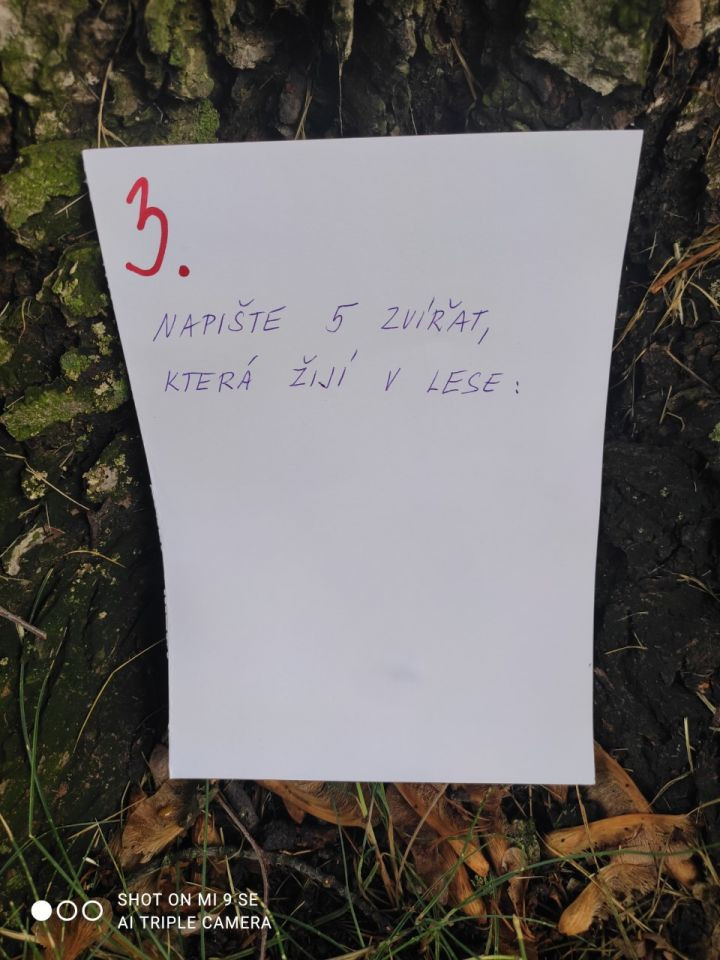 3.
NAPIŠTE 5 ZVÍŘAT,
KTERÁ ŽIJÍ V LESE:
SHOT ON MI 9 SE
AI TRIPLE CAMERA